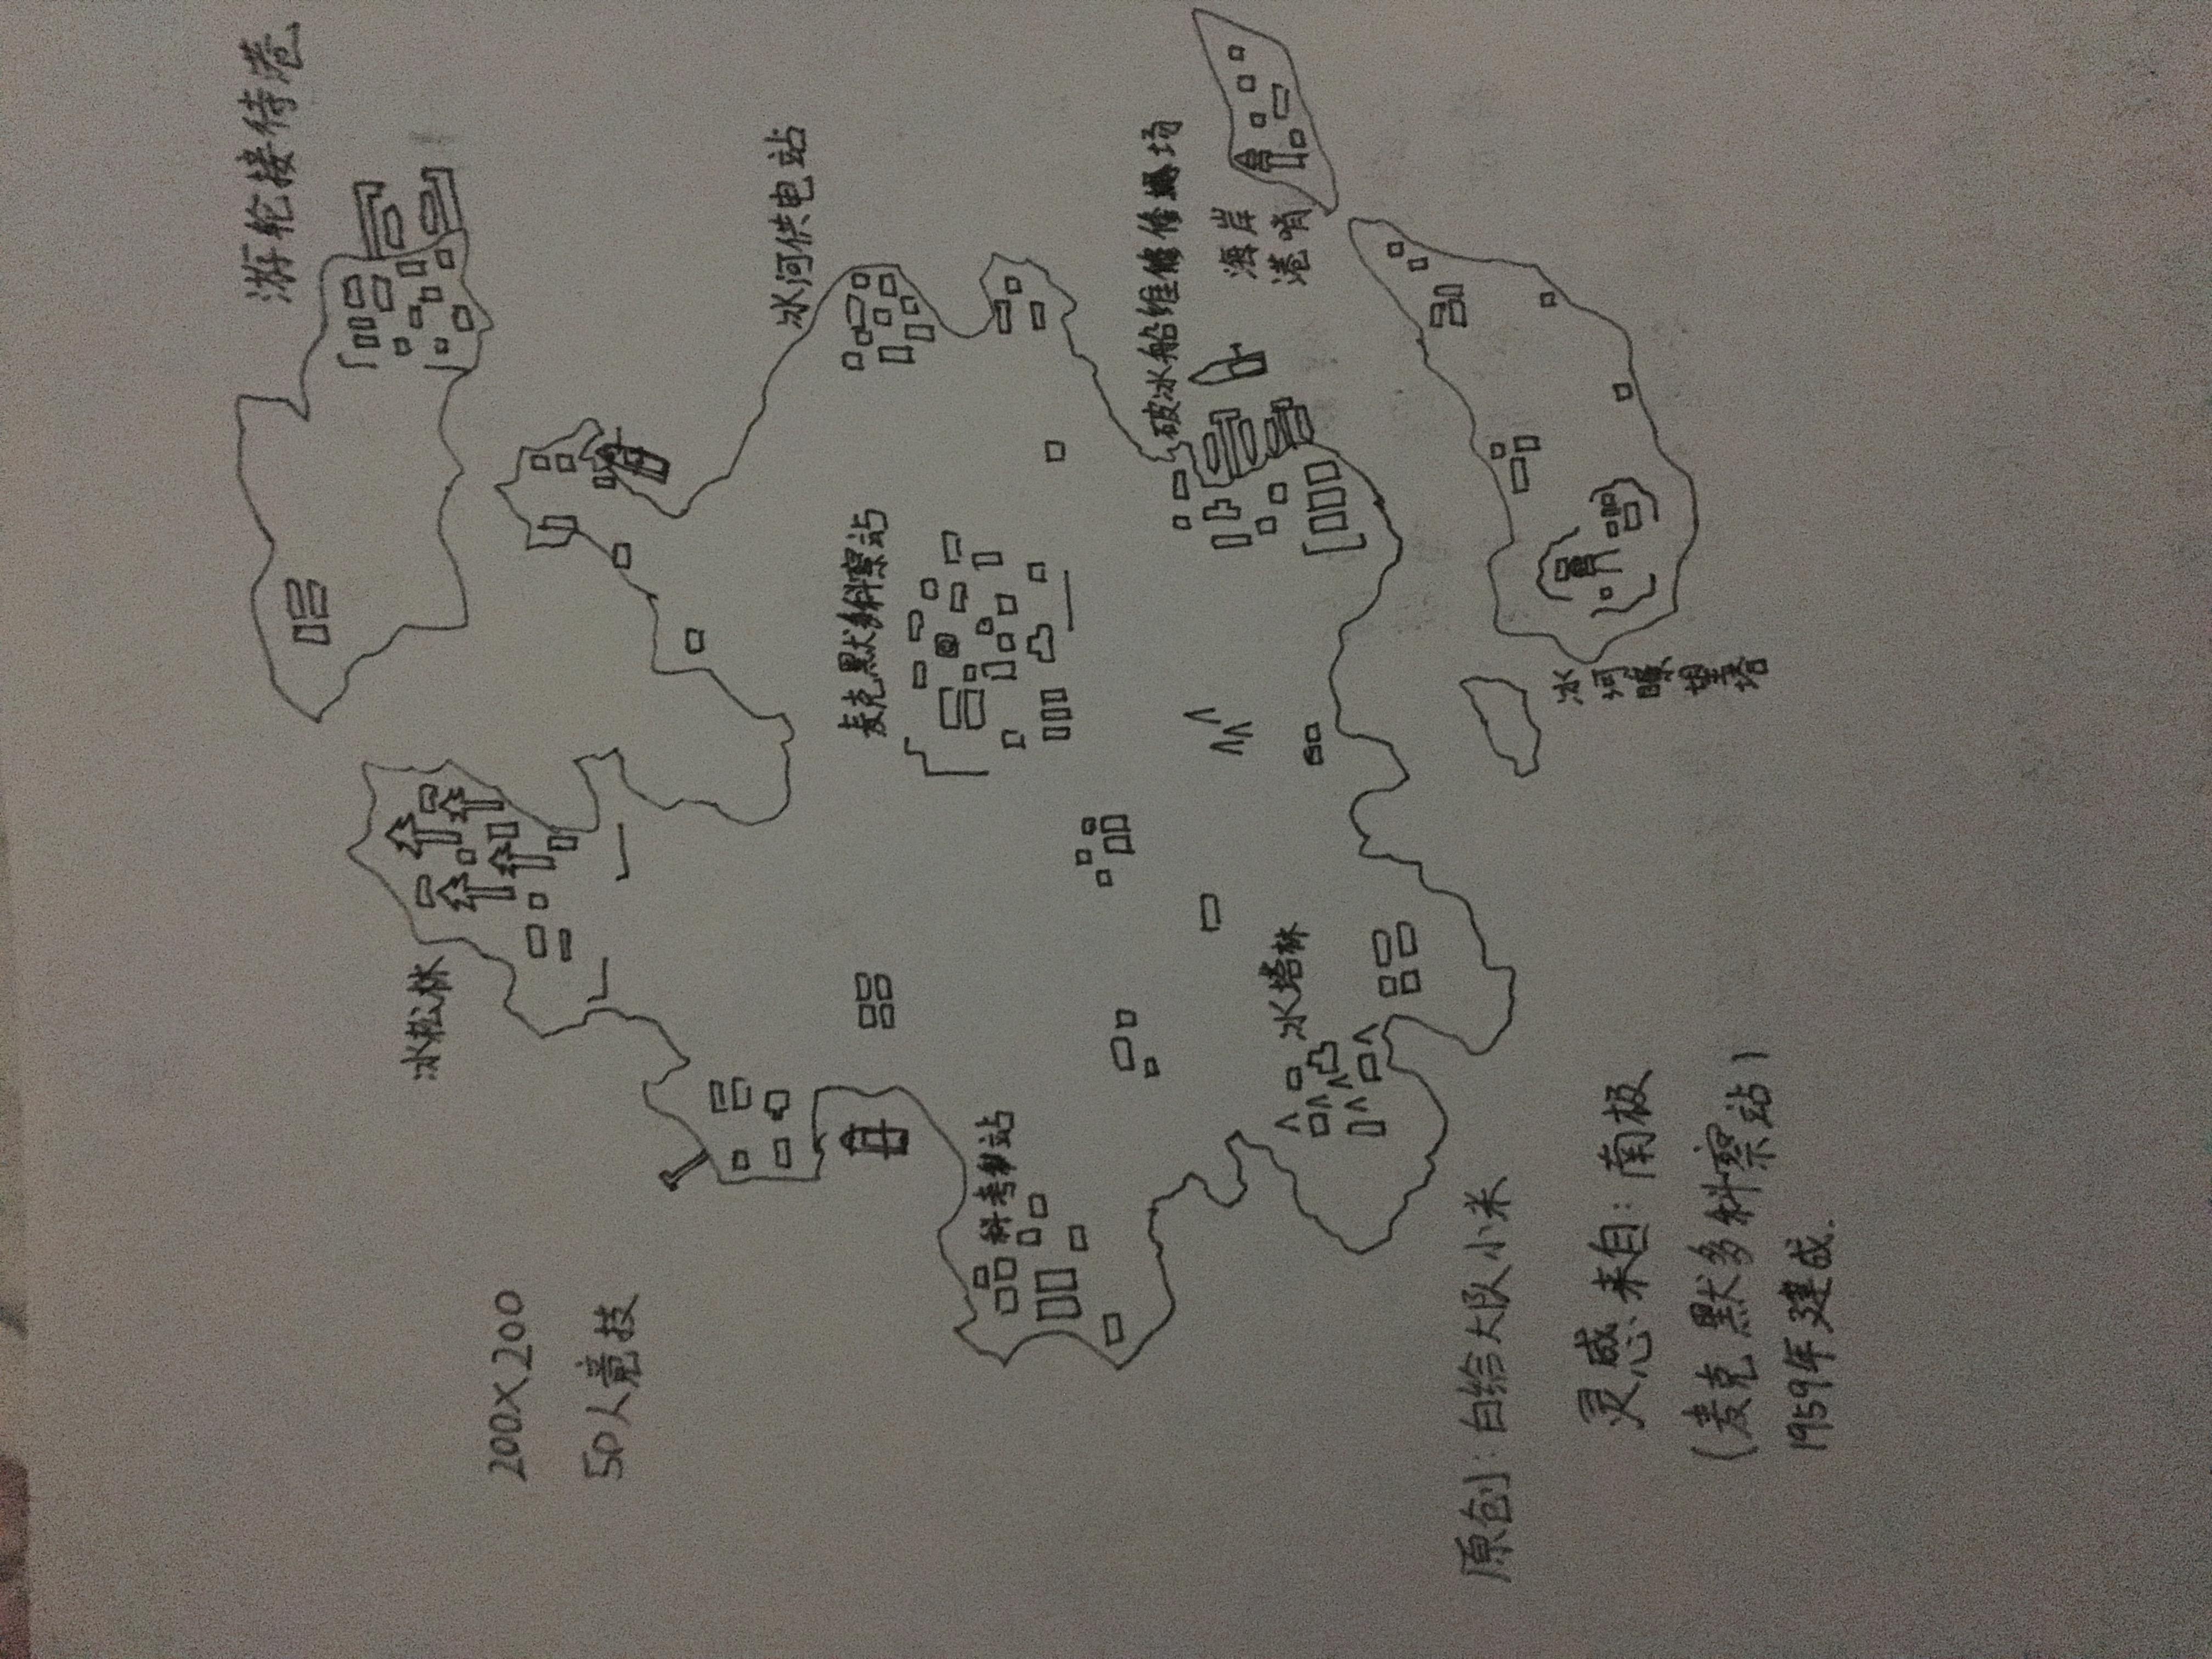 游轮接待港
冰松林
200×200
50人竞技
冰河供电站
麦克默多科察站
科考站
破冰船维修场
海岸
港哨
冰塔林
原创：白给大队小米
冰
河
瞭
望
塔
灵感来自：南极
（麦克默多科察站）
1959年建成.